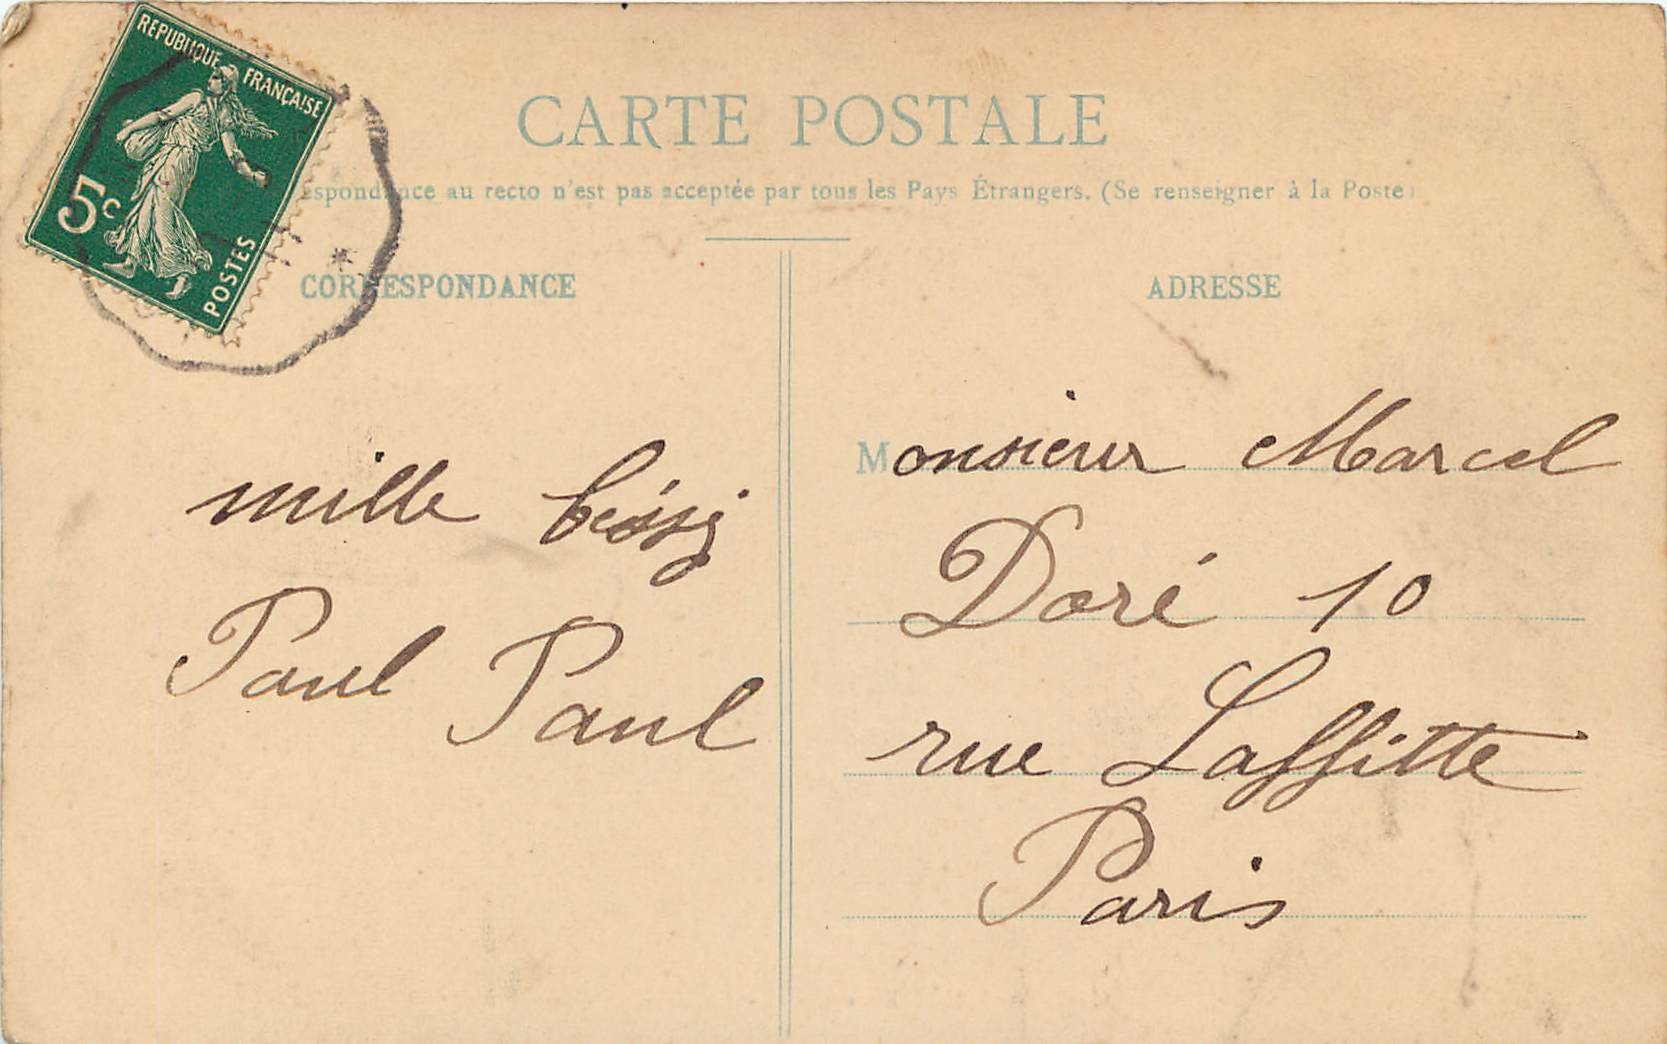 REPUBLIQUE FRANÇAISE
5c
POSTES
CARTE POSTALE
espondance au recto n'est pas acceptée par tous les Pays Étrangers. (Se renseigner à la Poste)
CORRESPONDANCE
mille
Paul Paul
ADRESSE
Monsieur Marcel
Doré 10
rue Laffitte
Paris